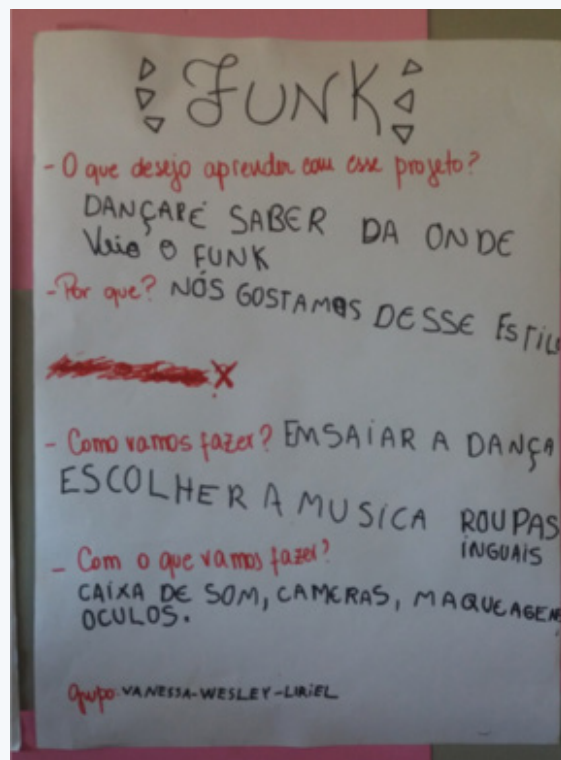 FUNK
- O que desejo aprender com esse projeto?
DANÇARE SABER DA ONDE
Veio o FUNK
- Por que? NÓS GOSTAMOS DESSE ESTILO
- Como vamos fazer? EMSAIAR A DANÇA
ESCOLHER A MUSICA ROUPAS
INGUAIS
- Com o que vamos fazer?
CAIXA DE SOM, CAMERAS, MAQUEAGENS
OCULOS.
Grupo: VANESSA-WESLEY-LIRIEL